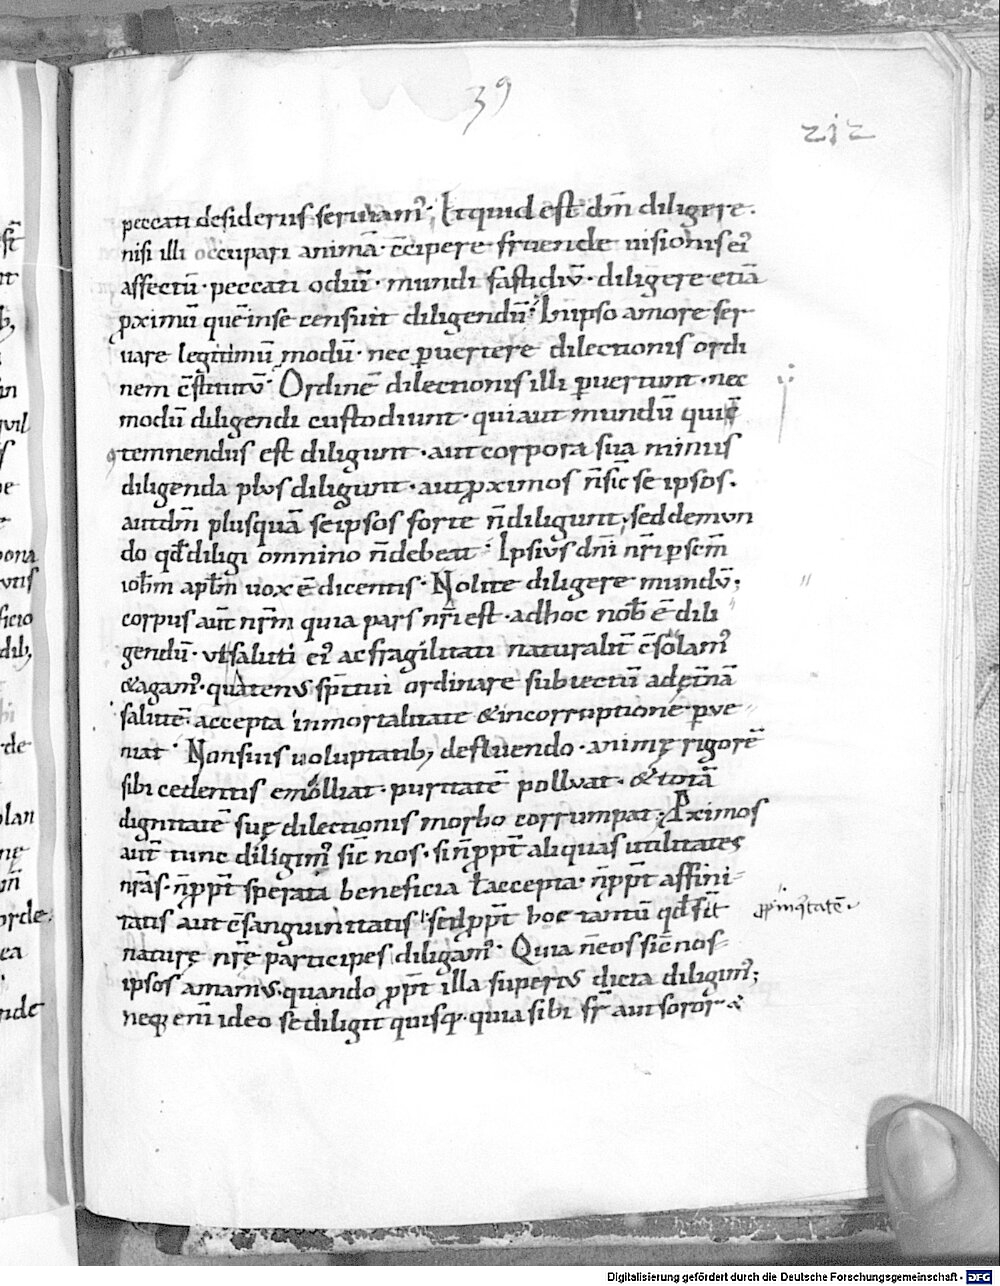 39
212
peccati desideriis seruiam᾽. Et quid est dm̄ diligere.
nisi illi occupari animā. c̄cipere fruende uisionis ei᾽
affectū. peccati odiū. mundi fastidiū. diligere etiā
ꝓximū quē in se censuit diligendū. In ipso amore ser
uare legitimū modū. nec ꝑuertere dilectionis ordi
nem c̄stitutū. Ordinē dilectionis illi ꝑuertunt. nec
modū diligendi custodiunt. qui aut mundū qui c̄
temnendus est diligunt. aut corpora sua minus
diligenda plus diligunt. aut ꝓximos n̄ sic̄ se ipsos.
aut dm̄ plusquā se ipsos forte n̄ diligunt; sed de mun
do qđ diligi omnino n̄ debeat. Ipsius dn̄i nr̄i ꝑ scm̄
ioħm aptm̄ uox ē dicentis. Nolite diligere mundū;
corpus aūt nr̄m quia pars nr̄i est. ad hoc nob̄ ē dili
gendū. ut saluti ei᾽ ac fragilitati naturalit̄ c̄solam᾽
& agam᾽. quatenus sp̄itui ordinate subiectū ad et̄nā
salutē. accepta inmortalitate & incorruptione ꝑue
niat. Non suis uoluptatib; defluendo. animę rigorē
sibi cedentis emolliat. puritatē polluat. & totā
dignitatē suę dilectionis morbo corrumpat. Ꝓximos
aūt tunc diligim᾽ sic̄ nos. si n̄ ꝓpt̄ aliquas utilitates
nr̄as. n̄ ꝓpt̄ sperata beneficia ł accepta. n̄ ꝓpt̄ affini-
tatis aut c̄sanguinitatis. sed ꝓpt̄ hoc tantū qđ sīt
ꝓpinq᾽tatē.
naturę nr̄ę participes diligam᾽. Quia n̄ eos sic̄ nos-
ipsos amamus. quando ꝓpt̄ illa superius dicta diligim᾽;
neq; eni̅ ideo se diligit quisq;. quia sibi fr̄ aut soror &
Digitalisierung gefördert durch die Deutsche Forschungsgemeinschaft - DFG